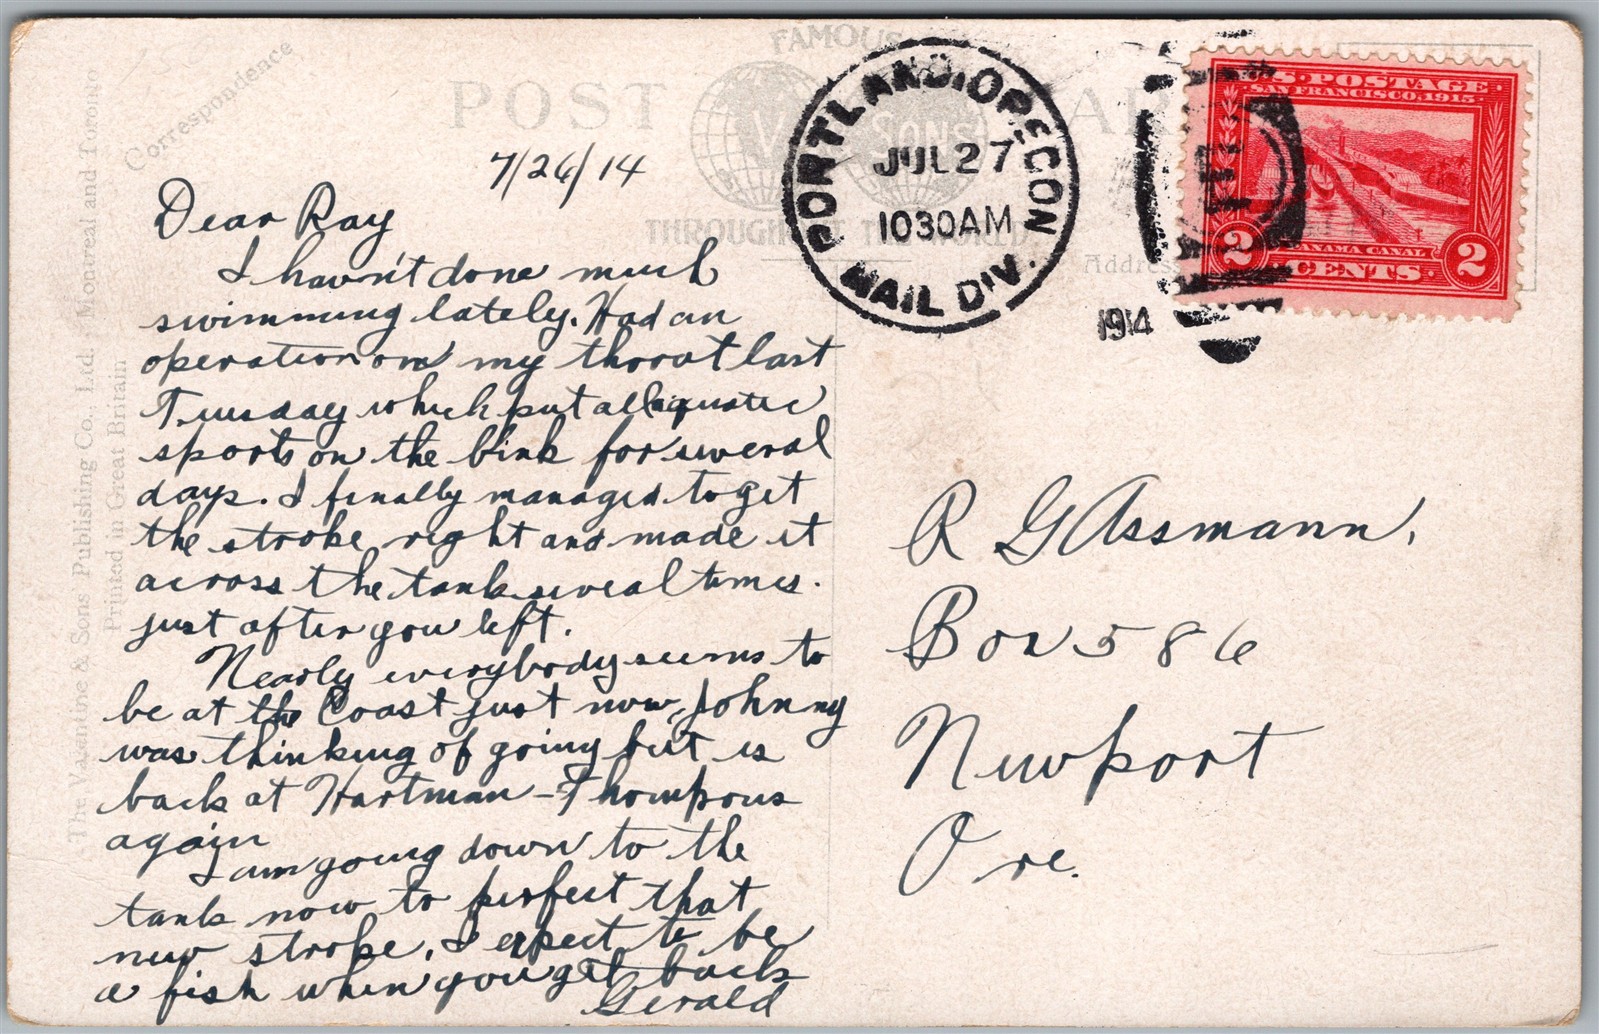 Correspondence
FAMOUS
POST CARD
V & SONS
THROUGHOUT THE WORLD
Address
PORTLAND, OREGON
JUL 27
1030AM
MAIL DIV.
1914
U.S. POSTAGE
SAN FRANCISCO, 1915
PANAMA CANAL
2 CENTS 2
The Valentine & Sons Publishing Co., Ltd. Montreal and Toronto
Printed in Great Britain
7/26/14
Dear Ray
I havn't done much
swimming lately. Had an
operation on my throat last
Tuesday which put all aquatic
sports on the blink for several
days. I finally managed to get
the stroke right and made it
across the tank several times.
just after you left.
Nearly everybody seems to
be at the Coast just now, Johnny
was thinking of going but is
back at Hartman-Thompsons
again
I am going down to the
tank now to perfect that
new stroke. I expect to be
a fish when you get back
Gerald
R G Assmann,
Box 586
Newport
Ore.